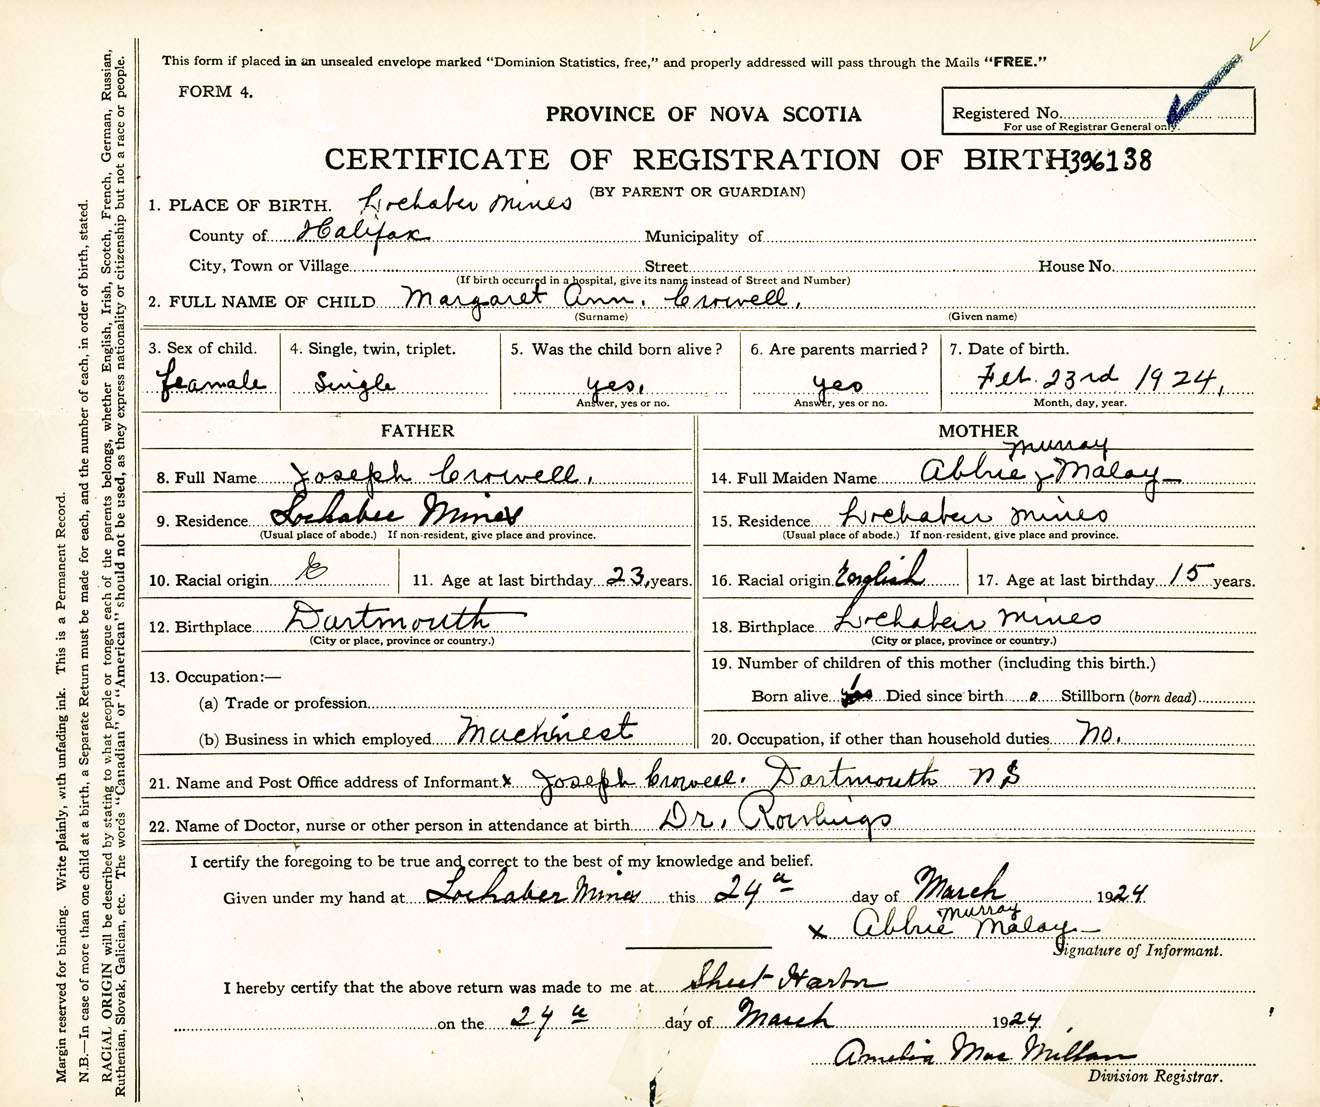 This form if placed in an unsealed envelope marked "Dominion Statistics, free," and properly addressed will pass through the Mails "FREE."
FORM 4.
PROVINCE OF NOVA SCOTIA
Registered No.
For use of Registrar General only.
CERTIFICATE OF REGISTRATION OF BIRTH 396138
(BY PARENT OR GUARDIAN)
1. PLACE OF BIRTH. Lochaber Mines
County of Halifax Municipality of
City, Town or Village Street House No.
(If birth occurred in a hospital, give its name instead of Street and Number)
2. FULL NAME OF CHILD Margaret Ann. Crowell.
(Surname) (Given name)
3. Sex of child. 4. Single, twin, triplet. 5. Was the child born alive? 6. Are parents married? 7. Date of birth.
feamale Single yes. yes Feb. 23rd 1924,
Answer, yes or no. Answer, yes or no. Month, day, year.
FATHER
8. Full Name Joseph Crowell.
9. Residence Lochaber Mines
(Usual place of abode.) If non-resident, give place and province.
10. Racial origin E 11. Age at last birthday 23, years.
12. Birthplace Dartmouth
(City or place, province or country.)
13. Occupation:—
(a) Trade or profession
(b) Business in which employed Machinest
MOTHER
Murray
14. Full Maiden Name Abbie Malay
15. Residence Lochaber Mines
(Usual place of abode.) If non-resident, give place and province.
16. Racial origin English 17. Age at last birthday 15 years.
18. Birthplace Lochaber Mines
(City or place, province or country.)
19. Number of children of this mother (including this birth.)
Born alive Died since birth 0 Stillborn (born dead)
20. Occupation, if other than household duties No.
21. Name and Post Office address of Informant x Joseph Crowell. Dartmouth N S
22. Name of Doctor, nurse or other person in attendance at birth Dr. Rowlings
I certify the foregoing to be true and correct to the best of my knowledge and belief.
Given under my hand at Lochaber Mines this 24th day of March 1924
Murray
x Abbie Malay
Signature of Informant.
I hereby certify that the above return was made to me at Sheet Harbor
on the 24th day of March 1924
Amelia Mac Millan
Division Registrar.
Margin reserved for binding. Write plainly, with unfading ink. This is a Permanent Record.
N.B.—In case of more than one child at a birth, a Separate Return must be made for each, and the number of each, in order of birth, stated.
RACIAL ORIGIN will be described by stating to what people or tongue each of the parents belongs, whether English, Irish, Scotch, French, German, Russian,
Ruthenian, Slovak, Galician, etc. The words "Canadian" or "American" should not be used, as they express nationality or citizenship but not a race or people.